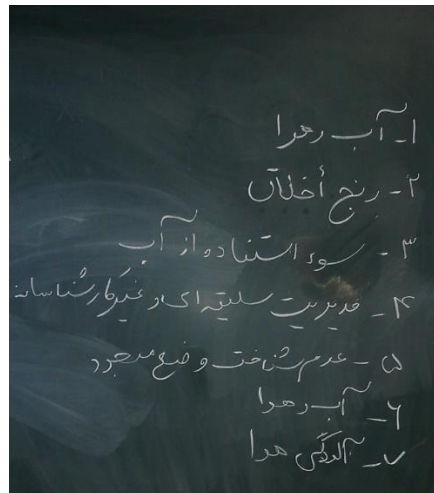 ۱- آب و هوا
۲- رنج أخلاق
۳- سوء استفاده از آب
۴- مدیریت سلیقه ای و غیر کارشناسانه
۵- عدم شناخت وضع موجود
۶- آب و هوا
۷- آلودگی هوا